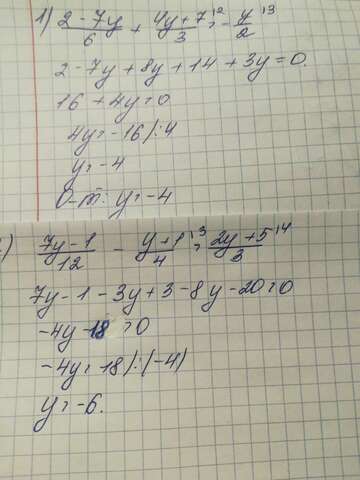 1) (2 - 7y)/6 + (4y + 7)/3 = - y/2
2 - 7y + 8y + 14 + 3y = 0.
16 + 4y = 0
4y = -16 /: 4
y = -4
О-т: y = -4
(7y - 1)/12 - (y + 1)/4 = (2y + 5)/3
7y - 1 - 3y + 3 - 8y - 20 = 0
-4y - 18 = 0
-4y = 18 /: (-4)
y = -6.